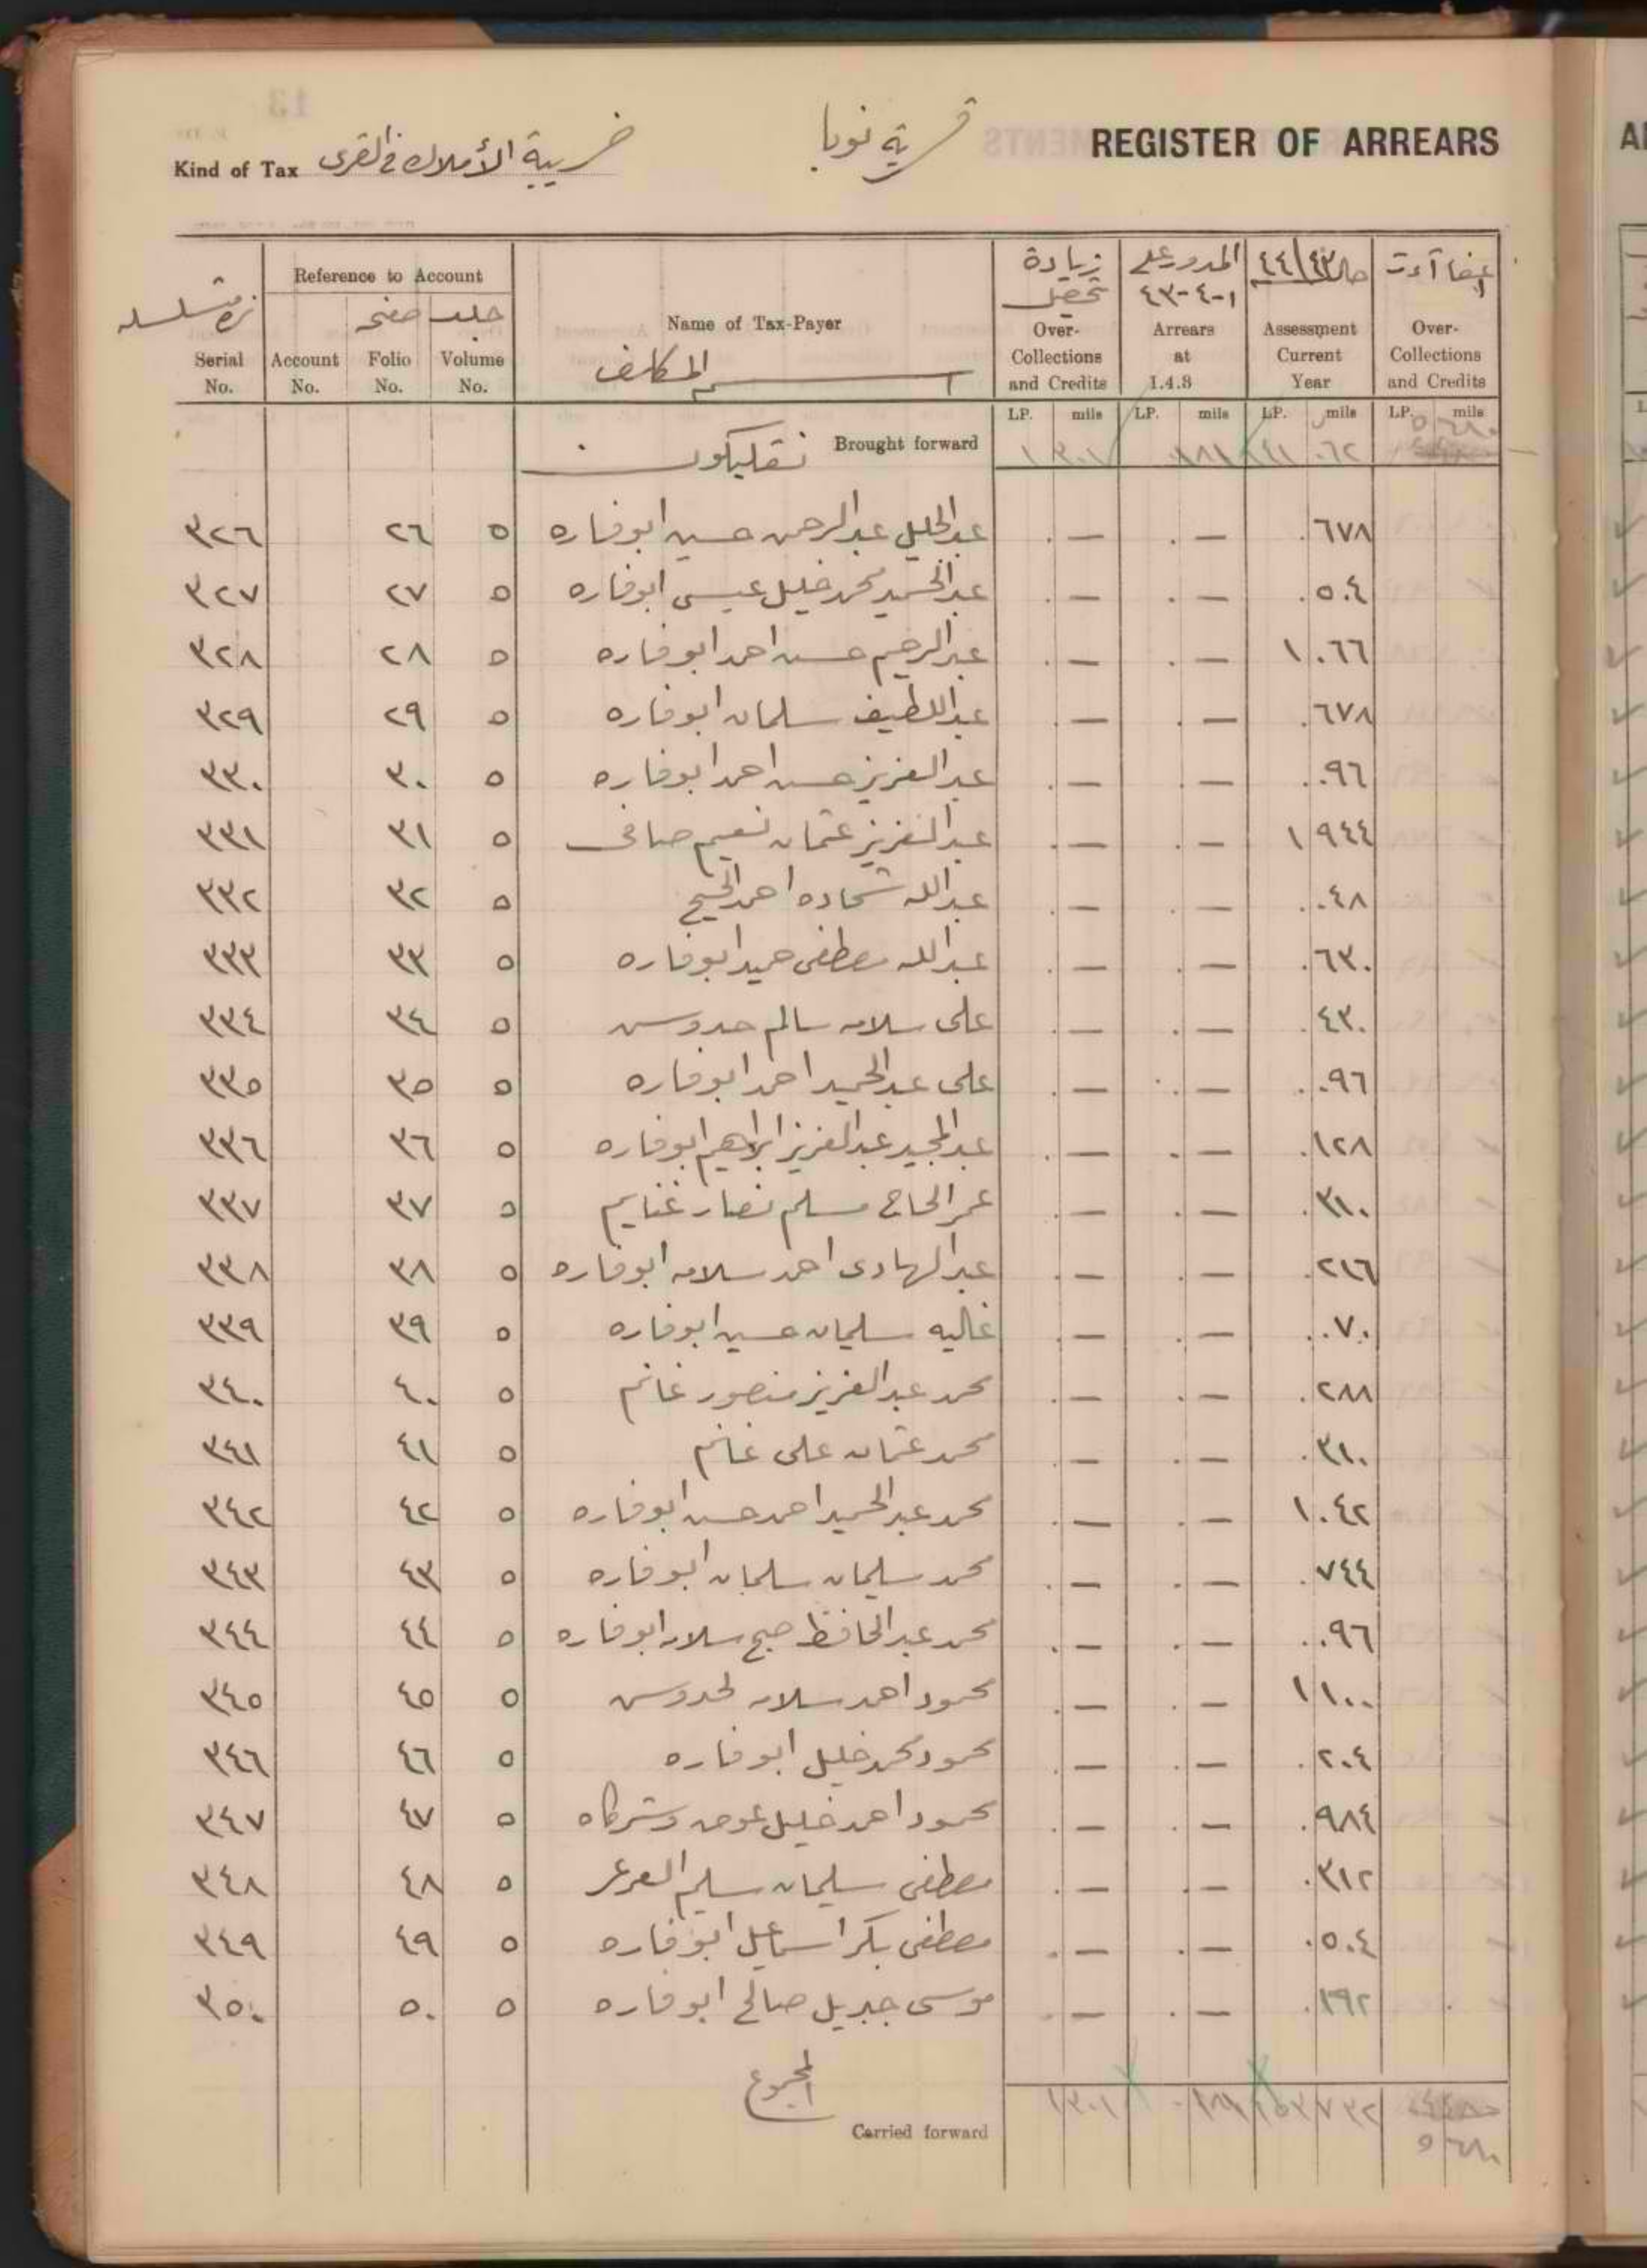 REGISTER OF ARREARS
قرية نوبا
Kind of Tax ضريبة الأملاك في القرى
Serial No.
Reference to Account
Account No.
صفحه Folio No.
جلد Volume No.
Name of Tax-Payer
اسم المكلف
زيادة تحصيل Over-Collections and Credits
المدور على ١-٤-٤٣ Arrears at 1.4.8
حالة ٤٤/٤٣ Assessment Current Year
اعفاآت Over-Collections and Credits
LP. mils LP. mils LP. mils LP. mils
Brought forward ١ ٣٠١ ٤١ ٠٦٢
٣٢٦ ٢٦ ٥ عبد الجليل عبد الرحمن حسين ابو فاره . — . — . ٦٧٨
٣٢٧ ٢٧ ٥ عبد الحميد محمد خليل عيسى ابو فاره . — . — . ٥٠٤
٣٢٨ ٢٨ ٥ عبد الرحيم حسن احمد ابو فاره . — . — ١ ٠٦٦
٣٢٩ ٢٩ ٥ عبد اللطيف سلمان ابو فاره . — . — . ٦٧٨
٣٣٠ ٣٠ ٥ عبد العزيز حسن احمد ابو فاره . — . — . ٠٩٦
٣٣١ ٣١ ٥ عبد العزيز عثمان نعيم صافى . — . — ١ ٩٤٤
٣٣٢ ٣٢ ٥ عبد الله شحاده احمد الشيخ . — . — . ٠٤٨
٣٣٣ ٣٣ ٥ عبد الله مصطفى حميد ابو فاره . — . — . ٦٣٠
٣٣٤ ٣٤ ٥ على سلامه سالم حدوس . — . — . ٤٣٠
٣٣٥ ٣٥ ٥ على عبد الحميد احمد ابو فاره . — . — . ٠٩٦
٣٣٦ ٣٦ ٥ عبد المجيد عبد العزيز ابراهيم ابو فاره . — . — . ١٢٨
٣٣٧ ٣٧ ٥ عمر الحاج مسلم نصار غنايم . — . — . ٣١٠
٣٣٨ ٣٨ ٥ عبد الهادى احمد سلامه ابو فاره . — . — . ٢١٦
٣٣٩ ٣٩ ٥ غاليه سليمان حسين ابو فاره . — . — . ٠٧٠
٣٤٠ ٤٠ ٥ محمد عبد العزيز منصور غانم . — . — . ٢٨٨
٣٤١ ٤١ ٥ محمد عثمان على غانم . — . — . ٣١٠
٣٤٢ ٤٢ ٥ محمد عبد الحميد احمد حسن ابو فاره . — . — ١ ٠٤٢
٣٤٣ ٤٣ ٥ محمد سليمان سلمان ابو فاره . — . — . ٧٤٤
٣٤٤ ٤٤ ٥ محمد عبد الحافظ صبح سلامه ابو فاره . — . — . ٠٩٦
٣٤٥ ٤٥ ٥ محمود احمد سلامه لحدوس . — . — ١ ١٠٠
٣٤٦ ٤٦ ٥ محمود محمد خليل ابو فاره . — . — . ٢٠٤
٣٤٧ ٤٧ ٥ محمود احمد خليل عوض وشركاه . — . — . ٩٨٤
٣٤٨ ٤٨ ٥ مصطفى سليمان سليم العرعر . — . — . ٣١٢
٣٤٩ ٤٩ ٥ مصطفى بكر اسماعيل ابو فاره . — . — . ٥٠٤
٣٥٠ ٥٠ ٥ موسى جبريل صالح ابو فاره . — . — . ١٩٢
المجموع
Carried forward ١ ٣٠١ ٥٣ ٧٣٢ ٥ ٦٨٠